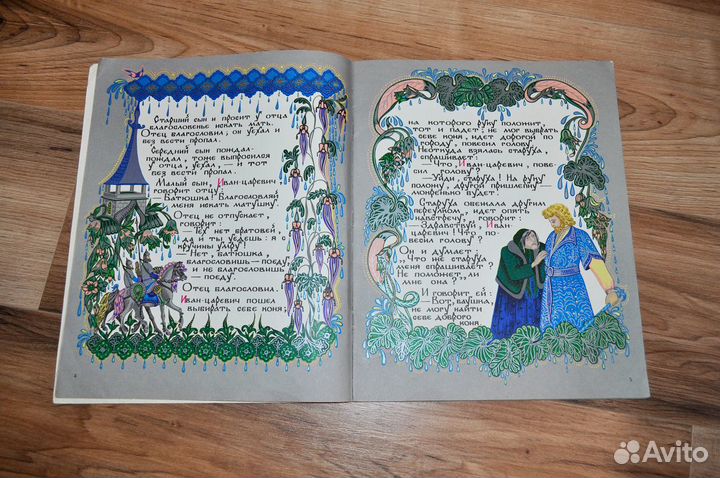 Старший сын и просит у отца
благословенье искать мать.
Отец благословил; он уехал и
без вести пропал.
Середний сын пождал-
пождал, тоже выпросился
у отца, уехал, — и тот
без вести пропал.
Малый сын, Иван-царевич
говорит отцу:
— Батюшка! Благословляй
меня искать матушку.
Отец не отпускает,
говорит:
— Тех нет братовей,
да и ты уедешь: я с
кручины умру!
— Нет, батюшка,
благословишь — поеду,
и не благословишь
— поеду.
Отец благословил.
Иван-царевич пошел
выбирать себе коня;
4
на которого руку положит,
тот и падет; не мог выбрать
себе коня, идет дорогой по
городу, повесил голову.
Неоткуда взялась старуха,
спрашивает:
— Что, Иван-царевич, пове-
сил голову?
— Уйди, старуха! На руку
положу, другой пришлепну —
мокренько будет.
Старуха обежала другим
переулком, идет опять
навстречу, говорит:
— Здравствуй, Иван-
царевич! Что по-
весил голову?
Он и думает:
„Что же старуха
меня спрашивает?
Не поможет ли
мне она?”
И говорит ей:
— Вот, баушка,
не могу найти
себе доброго
коня.
5
Avito